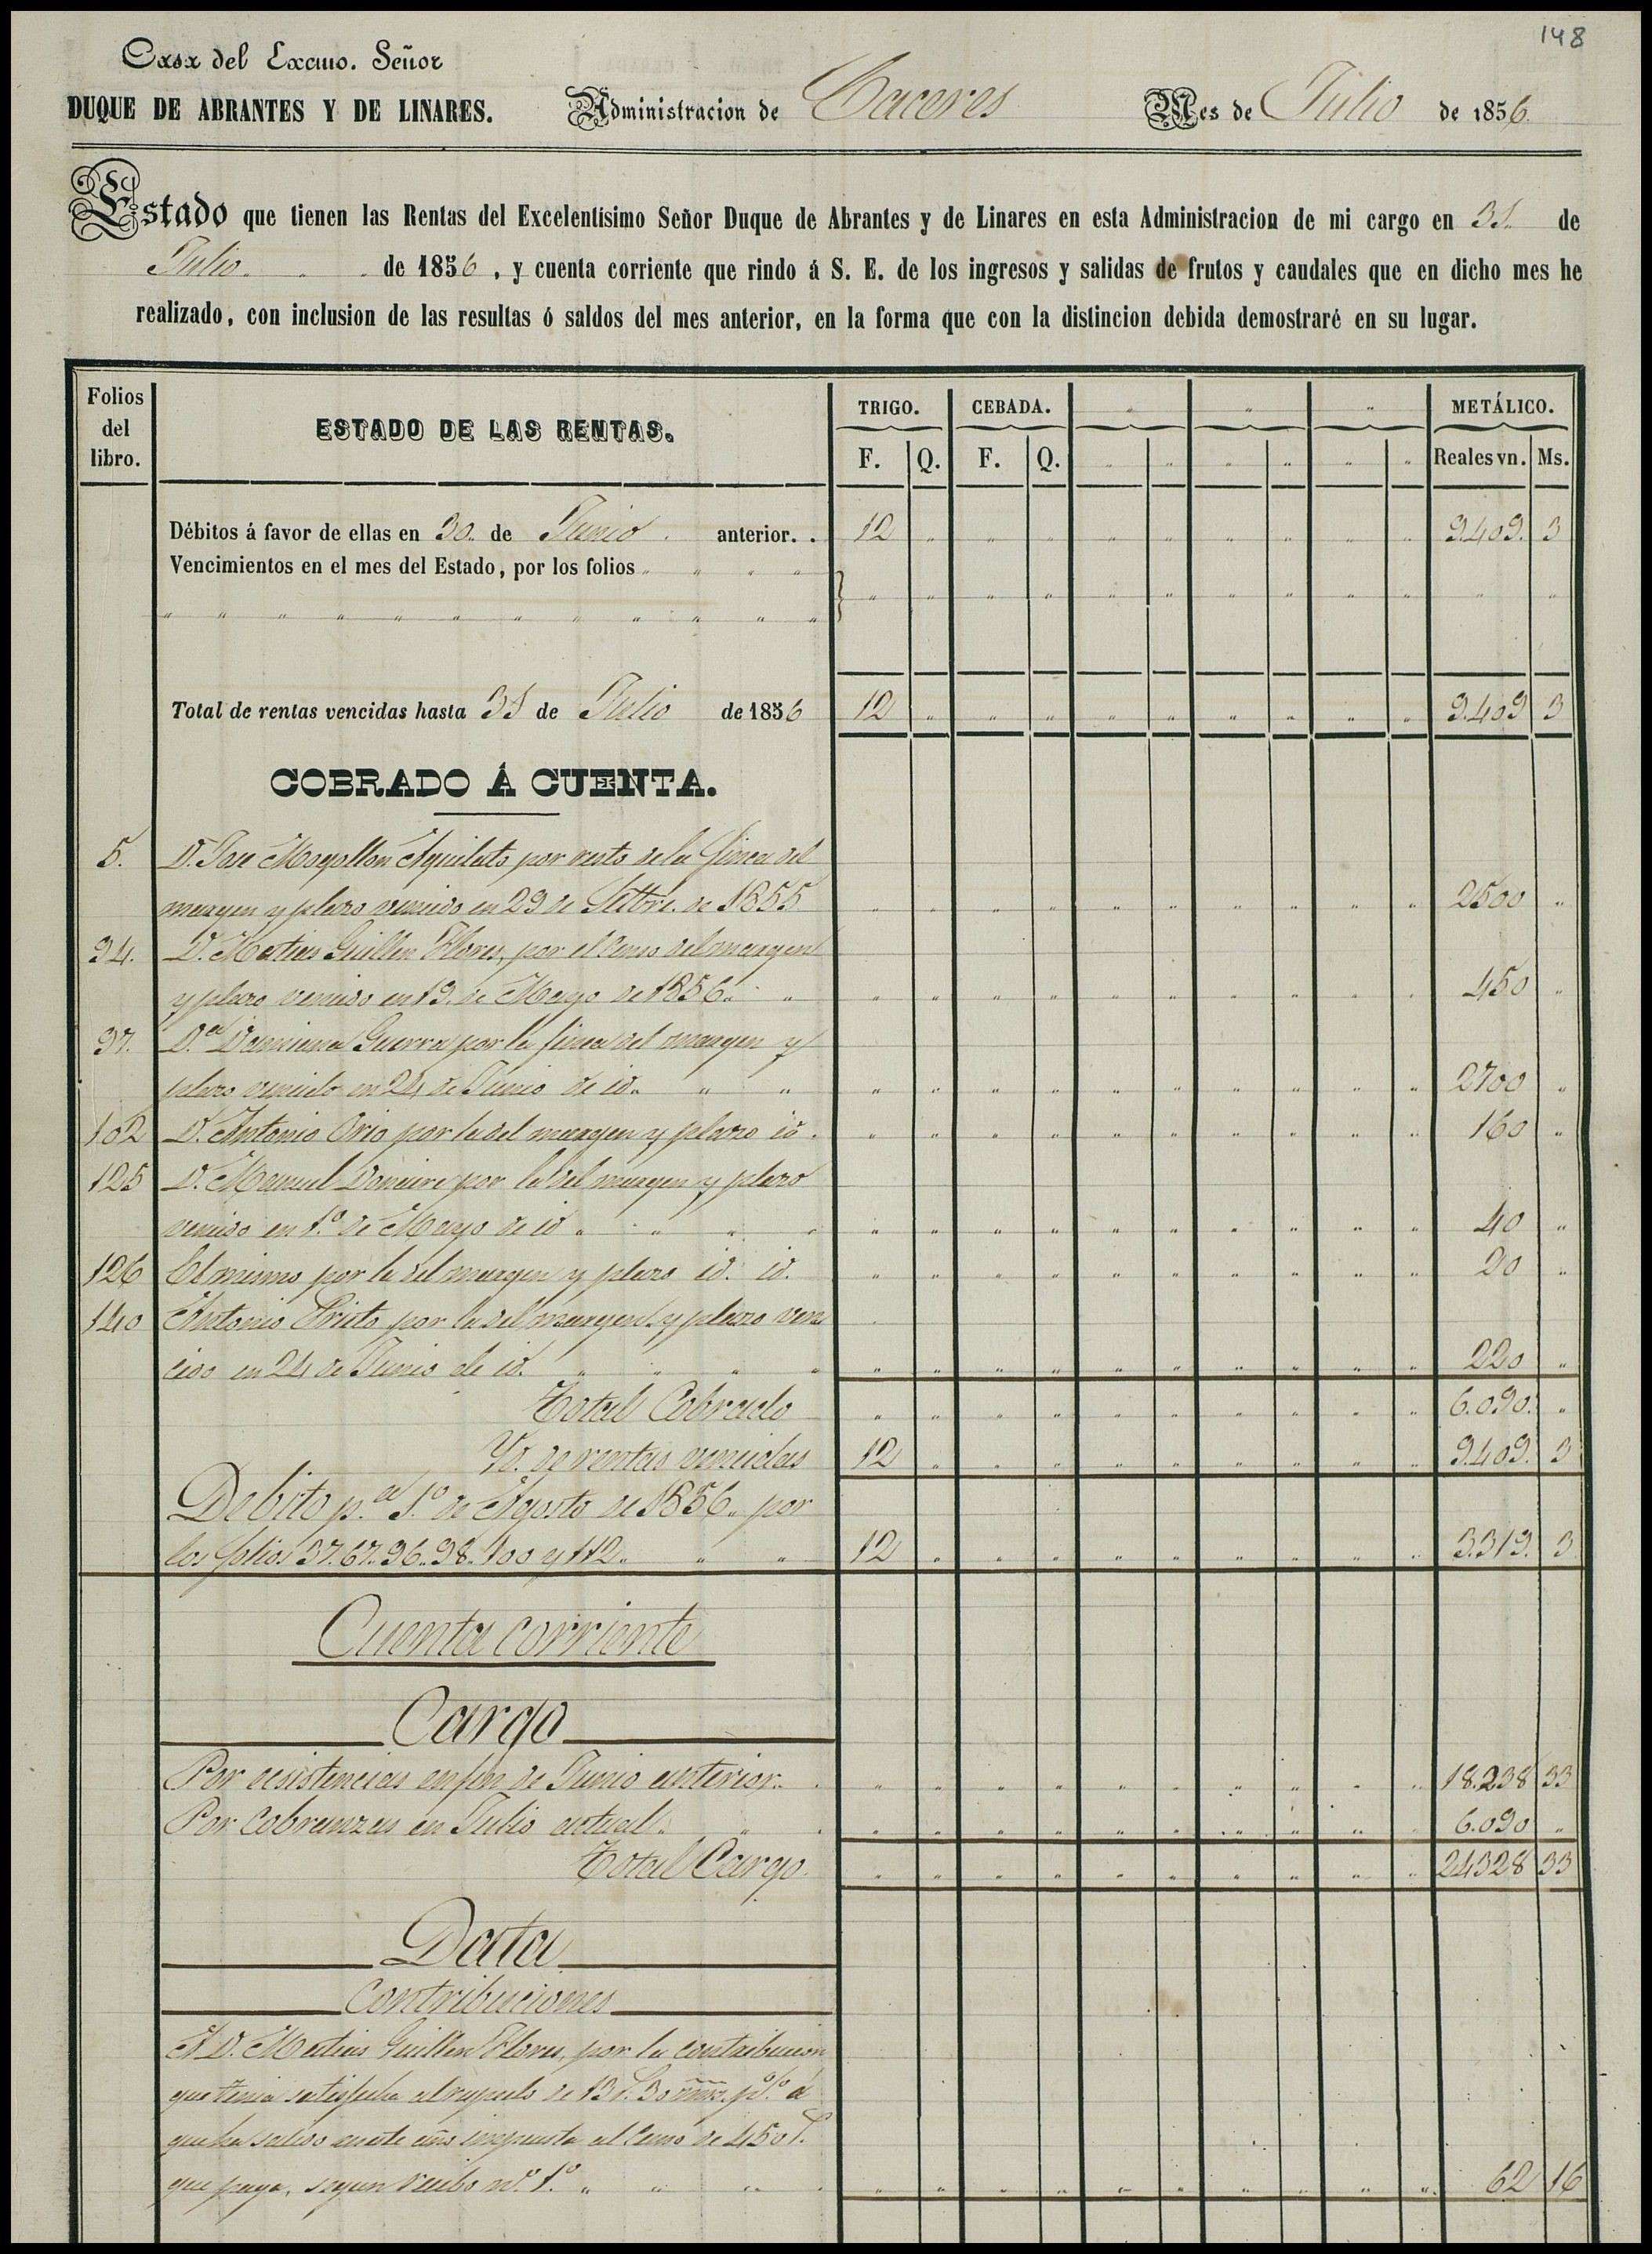 148
Casa del Excmo. Señor
DUQUE DE ABRANTES Y DE LINARES. Administracion de Caceres Mes de Julio de 1856.
Estado que tienen las Rentas del Excelentísimo Señor Duque de Abrantes y de Linares en esta Administracion de mi cargo en 31. de
Julio. de 1856, y cuenta corriente que rindo á S. E. de los ingresos y salidas de frutos y caudales que en dicho mes he
realizado, con inclusion de las resultas ó saldos del mes anterior, en la forma que con la distincion debida demostraré en su lugar.
Folios del libro. ESTADO DE LAS RENTAS. TRIGO. CEBADA. " " " METÁLICO.
F. Q. F. Q. " " " " " " Reales vn. Ms.
Débitos á favor de ellas en 30. de Junio. anterior. . 12 " " " " " " " " " 9.409. 3
Vencimientos en el mes del Estado, por los folios " " " "
" " " " " " " " " " " " " " " " " " " " " " " "
Total de rentas vencidas hasta 31 de Julio de 1856 12 " " " " " " " " " 9.409 3
COBRADO Á CUENTA.
5. D. Jose Mogollon Aquilato por resto de la finca del
margen y plazo vencido en 29 de Setbre. de 1855 " " " " " " " " " " 2500 "
94. D. Matias Guillen Flores, por el Censo del margen
y plazo vencido en 19. de Mayo de 1856. " " " " " " " " " " " 450 "
97. D.ª Damiana Guerra por la finca del margen y
plazo vencido en 24 de Junio de id. " " " " " " " " " " " " 2700 "
102 D. Antonio Orio por la del margen y plazo id. " " " " " " " " " " 160 "
125 D. Manuel por la del margen y plazo
vencido en 1.º de Mayo de id " " " " " " " " " " " " " " 40 "
126 El mismo por la del margen y plazo id. id. " " " " " " " " " " 20 "
140 Antonio Prieto por la del margen y plazo ven
cido en 24 de Junio de id. " " " " " " " " " " " " " " 220 "
Total Cobrado " " " " " " " " " " 6.090. "
Yd. de rentas vencidas 12 " " " " " " " " " 9.409. 3
Debito p.ª 1.º de Agosto de 1856. por
los folios 37. 67. 96. 98. 100 y 112. " " 12 " " " " " " " " " 3.319. 3
Cuenta corriente
Cargo
Por ecsistencias en fin de Junio anterior. " " " " " " " " " " 18.238 33
Por Cobranzas en Julio actual. " " " " " " " " " " " 6.090 "
Total Cargo. " " " " " " " " " " 24328 33
Data
Contribuciones
A D. Matias Guillen Flores, por la contribucion
que tenia satisfecha al respecto de 13 r. 30 mrs. p% á
que ha salido en este año impuesta al Censo de 450 r.
que paga, segun recibo n.º 1.º " " " " " " " " " " " " " 62 16